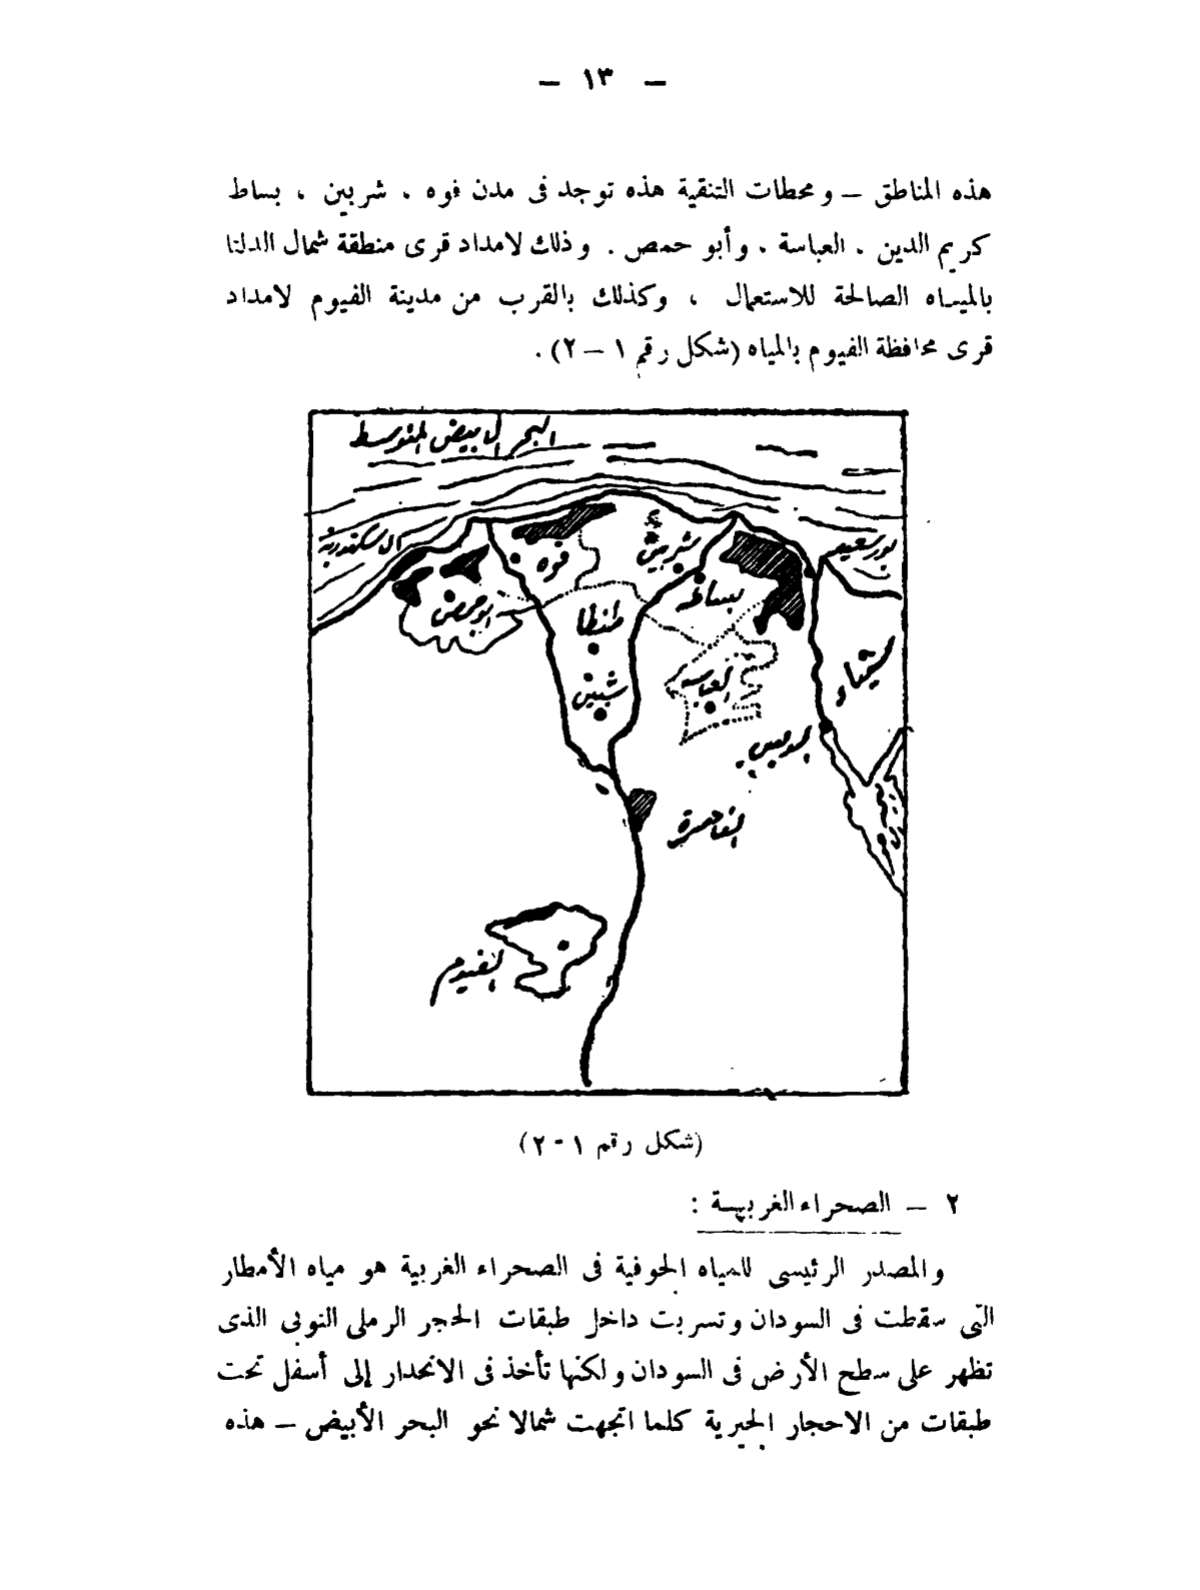 — ١٣ —
هذه المناطق — ومحطات التنقية هذه توجد فى مدن فوه ، شربين ، بساط
كريم الدين ، العباسة ، وأبو حمص . وذلك لامداد قرى منطقة شمال الدلتا
بالمياه الصالحة للاستعمال ، وكذلك بالقرب من مدينة الفيوم لامداد
قرى محافظة الفيوم بالمياه (شكل رقم ١ – ٢) .
البحر الابيض المتوسط
الاسكندرية
بورسعيد
فوه
شربين
ابو حمص
بساط
طنطا
سيناء
العباسه
شبين
السويس
القاهرة
الفيوم
(شكل رقم ١ - ٢)
٢ — الصحراء الغربية :
والمصدر الرئيسى للمياه الجوفية فى الصحراء الغربية هو مياه الأمطار
التى سقطت فى السودان وتسربت داخل طبقات الحجر الرملى النوبى الذى
تظهر على سطح الأرض فى السودان ولكنها تأخذ فى الانحدار إلى أسفل تحت
طبقات من الاحجار الجيرية كلما اتجهت شمالا نحو البحر الأبيض — هذه